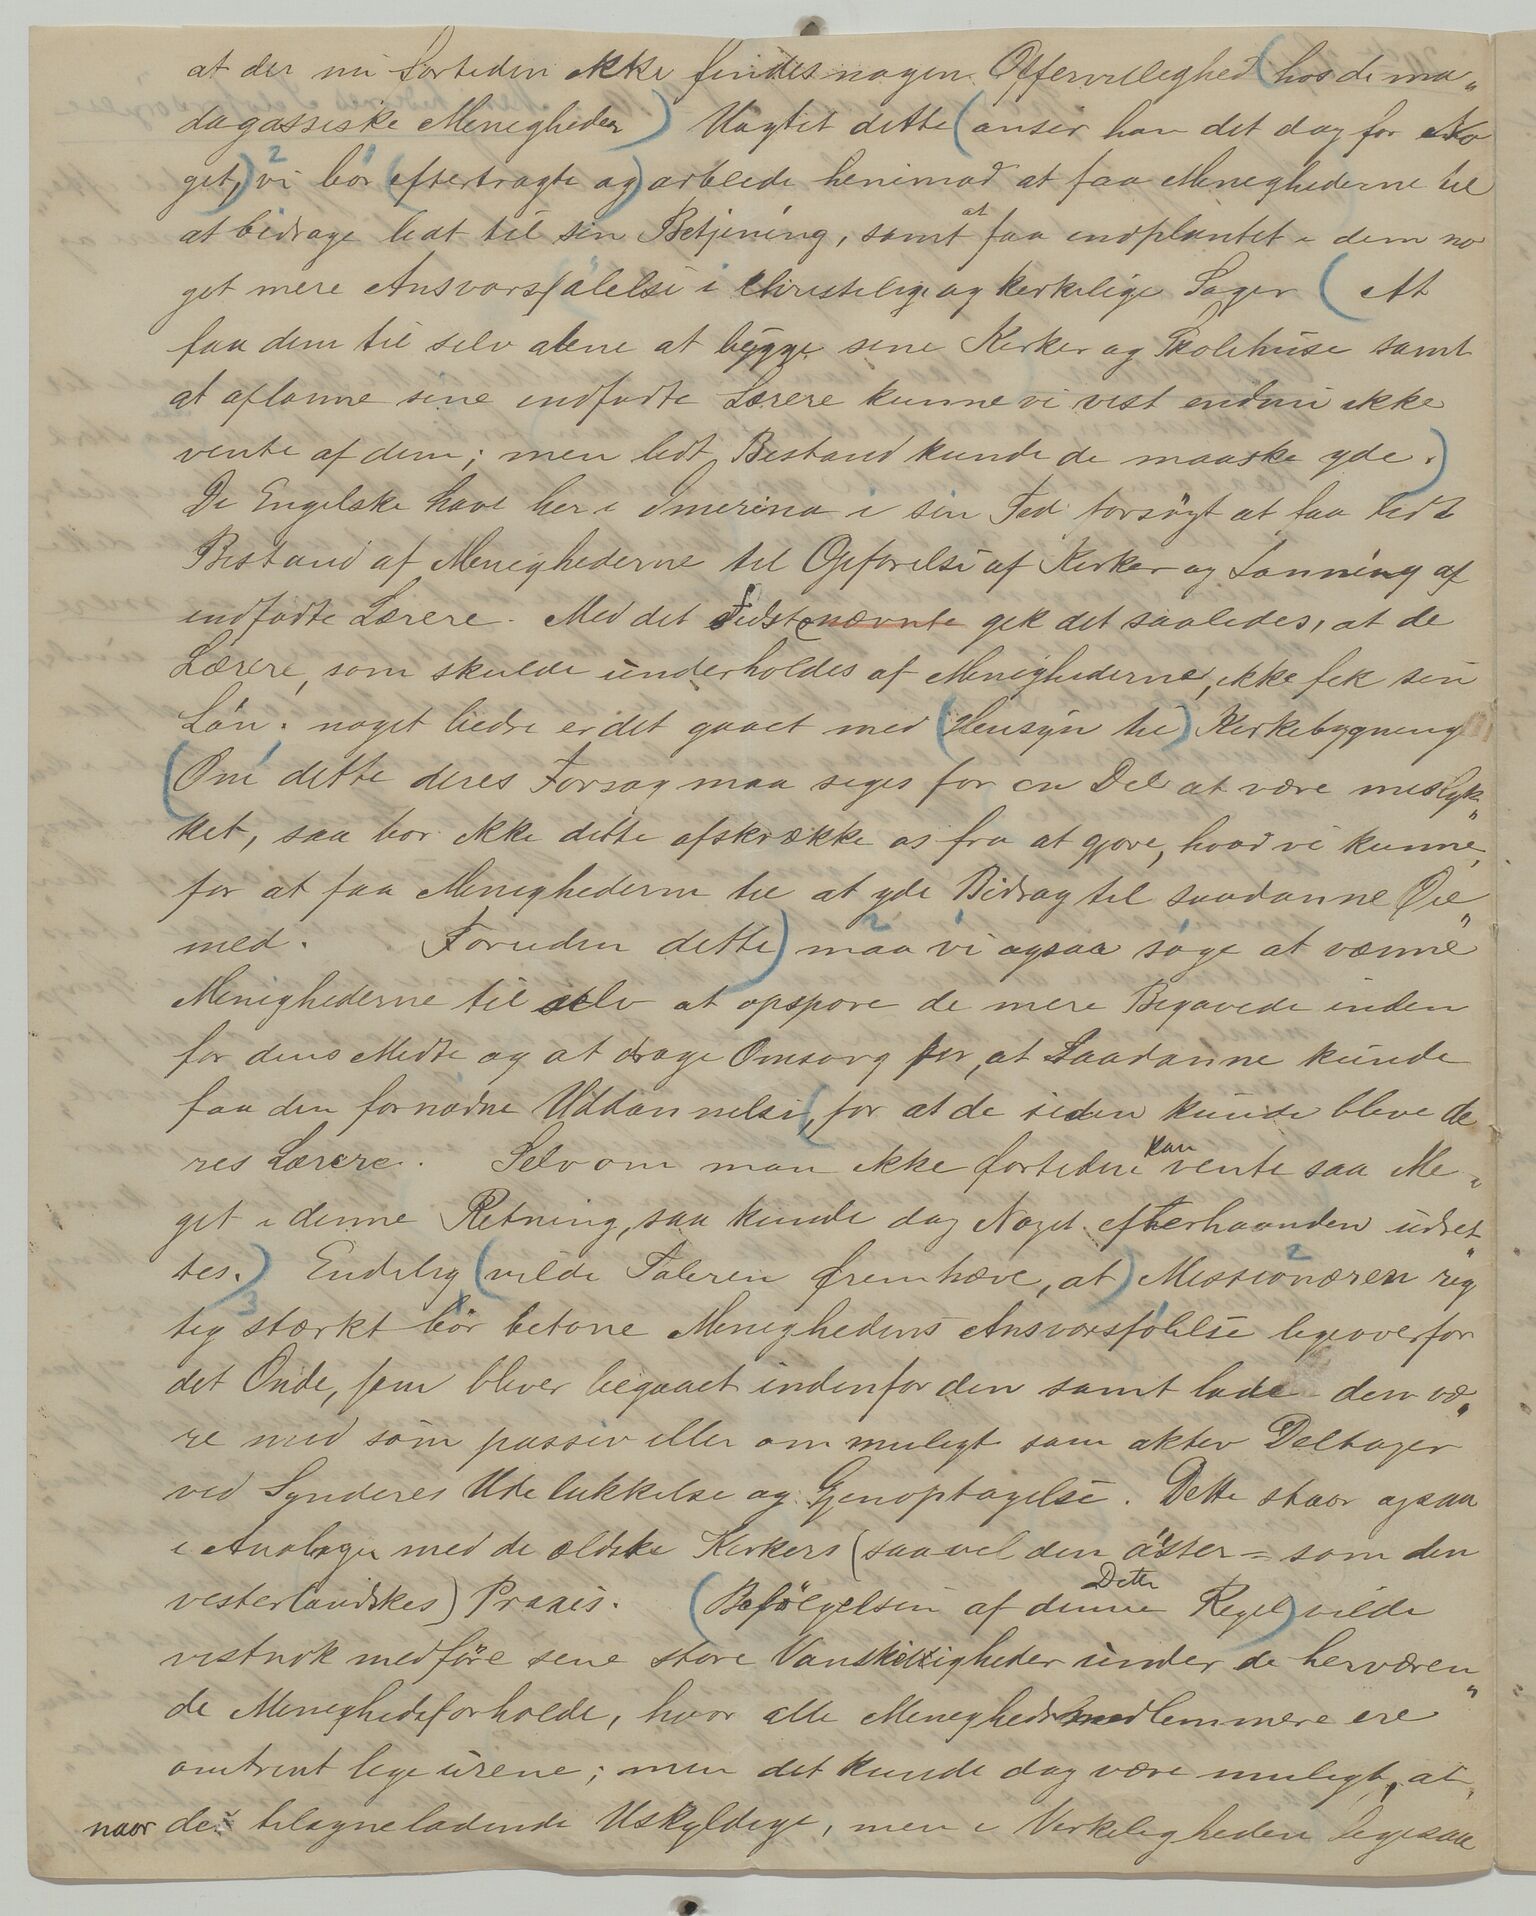 at der nu fortiden ikke findes nogen Offervillighed (hos de ma„
dagassiske Menigheder) Uagtet dette (anser han det dog for No
get,) vi bör (eftertragte og) arbeide henimod at faa Menighederne til
at bidrage lidt til sin Betjening, samt at faa indplantet i dem no
get mere Ansvarsfölelse i christelige og kirkelige Sager ( At
faa dem til selv alene at bygge sine Kirker og Skolehuse samt
at aflønne sine indfødte Lærere kunne vi vist endnu ikke
vente af dem; men lidt Bistand kunde de maaske yde.)
De Engelske have her i Imerina i sin Tid forsögt at faa lidt
Bistand af Menighederne til Opførelse af Kirker og Lønning af
indfødte Lærere. Med det sidste nævnte gik det saaledes, at de
Lærere, som skulde underholdes af Menighederne, ikke fik sin
Lön; noget bedre er det gaaet med (Hensyn til) Kirkebygning
(Om dette deres Forsøg maa siges for en Del at være mislyk„
ket, saa bør ikke dette afskrække os fra at gjøre, hvad vi kunne,
for at faa Menighederne til at yde Bidrag til saadanne Øie„
med. Foruden dette) maa vi ogsaa søge at vænne
Menighederne til selv at opspore de mere Begavede inden
for dens Midte og at drage Omsorg for, at Saadanne kunde
faa den fornødne Uddannelse, (for at de siden kunde blive de
res Lærere. Selv om man ikke fortiden kan vente saa Me„
get i denne Retning, saa kunde dog Noget efterhaanden udret„
tes.) Endelig (vilde Taleren fremhæve, at) Missionæren rig
tig stærkt bör betone Menighedens Ansvarsfölelse ligeoverfor
det Onde, som bliver begaaet indenfor den samt lade den væ„
re med som passiv eller om muligt som aktiv Deltager
ved Synderes Udelukkelse og Gjenoptagelse. Dette staar ogsaa
i Analogi med de ældste Kirkers (saavel den öster= som den
vesterlandskes) Praxis. (Befölgelsen af denne Dette Regel) vilde
vistnok medföre sine store Vanskeligheder under de herværen„
de Menighedsforholde, hvor alle Menighedsmedlemmere ere
omtrent lige urene; men det kunde dog være muligt, at,
naar de tilsyneladende Uskyldige, men i Virkeligheden ligesaa